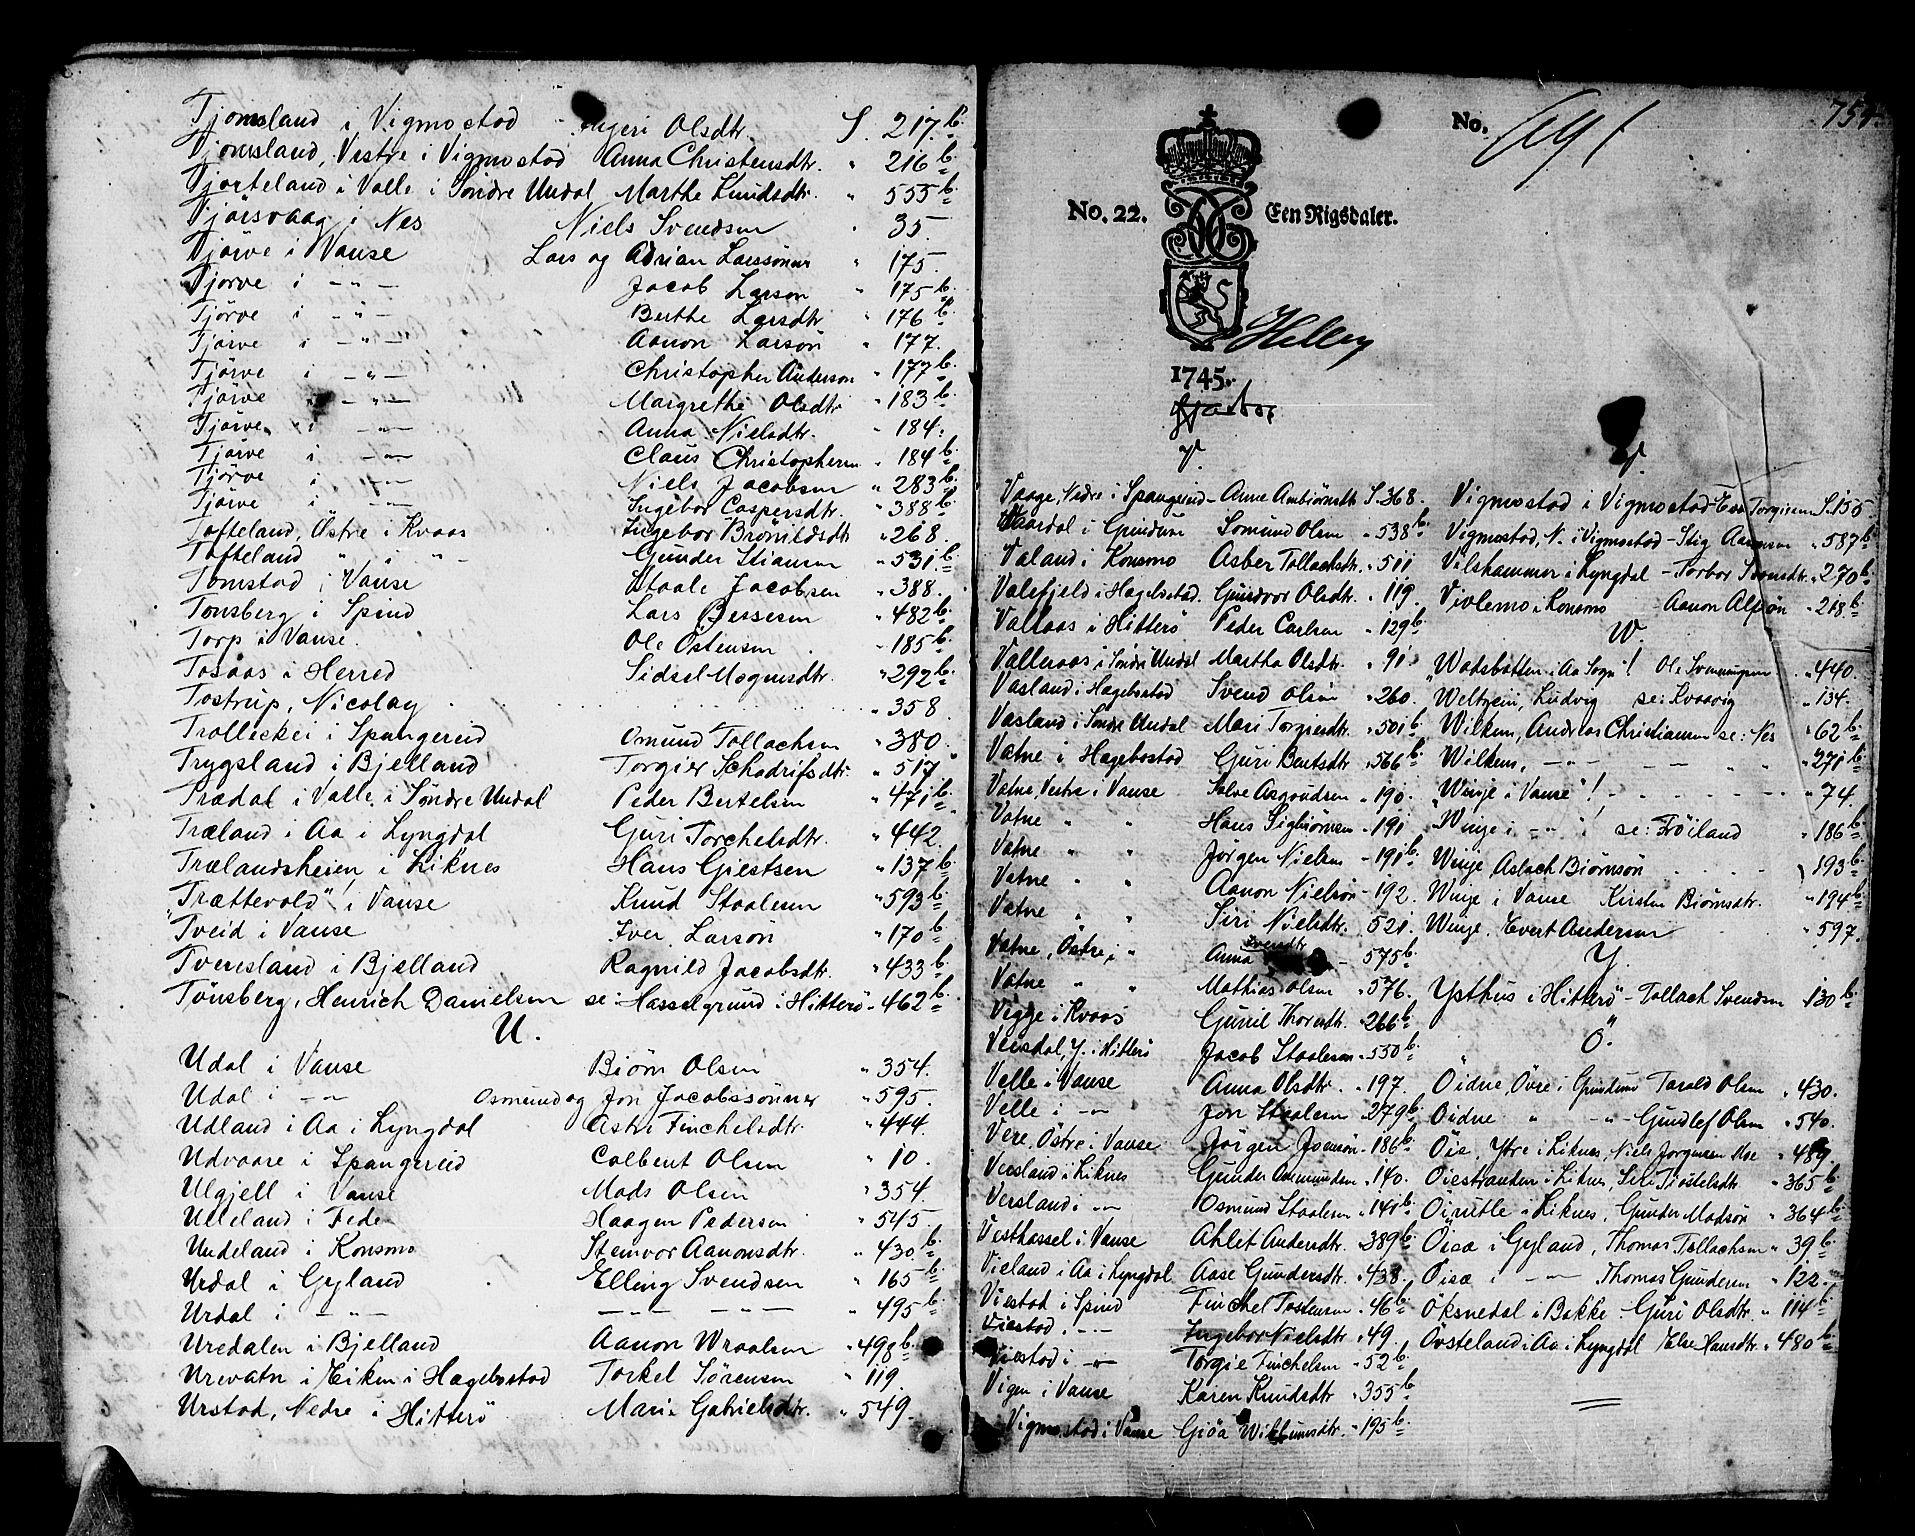 Tjomsland i Vigmostad Ingeri Olsdtr. S. 217.b
Tjomsland, Vestre i Vigmostad Anna Christensdtr. " 216 b
Tjorteland i Valle i Søndre Undal Marthe Knudsdtr. " 555 b
Tjørsvaag i Nes Niels Svendsen " 35.
Tjörve i Vanse Lars og Adrian Larssönner " 175.
Tjörve i -"- Jacob Larson " 175 b
Tjörve i -"- Berthe Larsdtr. " 176 b
Tjörve i -"- Aanon Larsön " 177.
Tjörve i -"- Christopher Anderson " 177 b
Tjörve -"- Margrethe Olsdtr " 183 b
Tjörve i -"- Anna Nielsdtr. " 184.
Tjörve i -"- Claus Christophersen " 184 b
Tjörve i -"- Niels Jacobsen " 283 b
Tjörve i -"- Ingebor Caspersdtr. " 388 b
Tofteland, Östre i Kvaas Ingebor Brönildsdtr " 268.
Tofteland " i " Gunder Stiansen " 531. b
Tomstad i Vanse Staale Jacobsen " 388.
Tonsberg i Spind Lars Bessesen " 482 b
Torp i Vanse. Ole Östensen " 185 b
Tosaas i Herred Sidsel Mogensdtr. " 292 b
Tostrup, Nicolay " 358.
Trolleker i Spangereid Omund Tollachsen " 380.
Trygsland i Bjelland Torgier Schadrifsdtr. " 517
Trædal i Valle i Söndre Undal Peder Bertelsen " 471 b
Træland i Aa i Lyngdal Guri Torchelsdtr. " 442.
Trælandsheien i Liknes Hans Giestsen " 137 b
"Trættevold"! i Vanse Knud Staalesen " 593 b
Tveid i Vanse Iver Larsön " 170 b
Tveresland i Bjelland Ragnild Jacobsdtr. " 433 b
Tønsberg, Henrich Danielsen se: Hasselgrund i Hitterö " 462 b
U.
Udal i Vanse Biörn Olsen " 354.
Udal i -"- Osmund og Jon Jacobssönner " 595.
Udland i Aa i Lyngdal Astri Finchelsdtr. " 444.
Udvaare i Spangereid Colbent Olsen " 10.
Ulgjell i Vanse Mads Olsen " 354.
Ulleland i Feda Haagen Pedersen " 545.
Undeland i Konsmo Stenvor Aanonsdtr. " 430 b
Urdal i Gyland Elling Svendsen " 165 b
Urdal i -"- -"- -"- " 495 b
Uredalen i Bjelland Aanon Wraalsen " 498 b
Urevatn i Eiken i Hægebostad Torkel Sørensen " 119
Urstad, Nedre i Hitterö Mari Gabrielsdtr. " 549.
754.
No. 691
No. 22. Een Rigsdaler.
Helley
1745.
V.
Vaage, Nedre i Spangereid - Anne Ambiörnsdtr S. 368.
Vaardal i Grindum Somund Olsen " 538 b
Valand i Konsmo Asber Tollachsdtr. " 511
Valefjeld i Hægebostad. Gundvor Olsdtr. " 119
Vallaas i Hitterö Peder Carlsen " 129 b
Valleraas i Söndre Undal Martha Olsdtr. " 91
Vasland i Hægebostad Svend Olsen " 260.
Vasland i Söndre Undal Mari Torgiersdtr. " 501 b
Vatne i Hægebostad Guri Bentsdtr " 566 b
Vatne, Vestre i Vanse Salve Asgoudsen " 190.
Vatne " " Hans Sigbiörnsen " 191
Vatne " " Jörgen Nielsen " 191 b
Vatne " " Aanon Nielsön " 192.
Vatne " " Siri Nielsdtr. 521.
Vatne, Östre i " Anna Svendtr - 575 b
Vatne " " Mathias Olsen " 576.
Vigge i Kvaas Gunil Thorsdtr. " 266 b
Veisdal, Y. i Hitterö Jacob Staalesen " 550 b
Velle i Vanse Anna Olsdtr. " 197
Velle i -"- Jon Staalesen " 279 b
Vere, Östre i Vanse Jörgen Joensön " 186 b
Versland i Liknes Gunder Aanundsen " 140.
Versland i -"- Osmund Staalesen " 141 b
Vesthassel i Vanse Ahlet Andersdtr. " 389 b
Vieland i Aa i Lyngdal Aase Gundersdtr. " 438
Viestad i Spind Finchel Tostensen " 46 b
Viestad i -"- Ingebor Nielsdtr " 49.
Viestad i -"- Torgie Finchelsen " 52 b
Vigen i Vanse Karen Knudsdtr " 355 b
Vigmostad i Vanse Giöa Willumsdtr. " 195 b
V.
Vigmostad i Vigmostad - Eva Torgiersen S. 155
Vigmostad, N. i Vigmostad - Stig Aanensen " 587 b
Vilshammer i Lyngdal - Torbor Svensdtr. " 270 b
Violemo i Konsmo - Aanon Alfsön " 218 b
W.
"Wadsbotten i Aa Sogn"! Ole Svenungsen " 440.
Weltzin, Ludvig se: Kvaavig " 134.
Wilken, Andreas Christiansen se: Nes " 62 b
Wilken, -"- " " 271 b
"Winje i Vanse"! " 74.
"Winje i -"-"! se: Fröiland " 186 b
Winje, Aslach Biörnsön 193 b
Winje i Vanse Kirsten Biörnsdtr. " 194 b
Winje, Evert Andersen " 597.
Y.
Ysthus i Hitterö - Tollach Svendsen " 130 b
Ö.
Öidne, Övre i Grindum Tarald Olsen " 430.
Öidne " -"- Gundlef Olsen " 540.
Öie, Ytre i Liknes, Niels Jorgensen Moe " 489.
Öiestranden i Liknes, Siri Tostelsdtr " 365 b
Öirutle i Liknes, Gunder Madsön " 364 b
Öisæ i Gyland, Thomas Tollachsen " 39 b
Öisæ i -"- Thomas Gundersen " 122.
Öksnedal i Bakke. Guri Olsdtr. " 114 b
Övsteland i Aa i Lyngdal Else Hansdtr. " 480 b